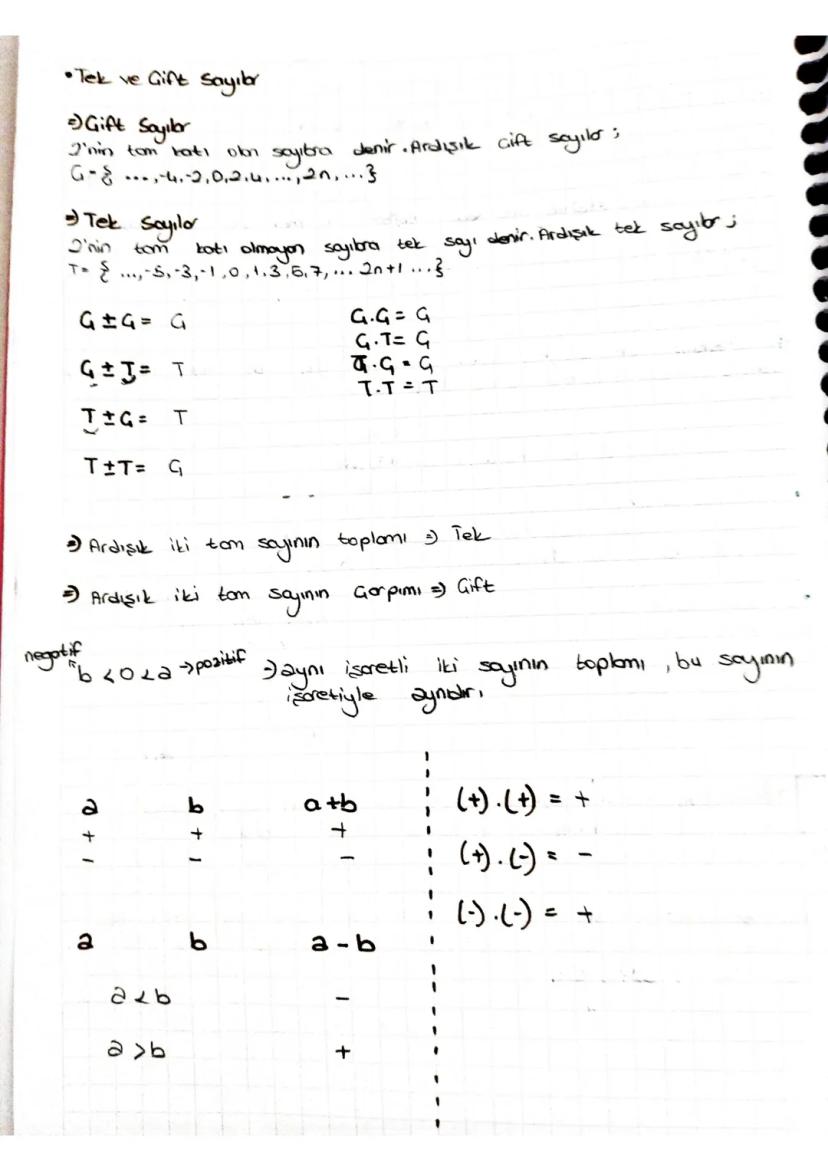 • Tek ve Çift Sayılar
⇒ Çift Sayılar
2'nin tam katı olan sayılara denir. Ardışık çift sayılar ;
Ç = { ..., -4, -2, 0, 2, 4, ..., 2n, ... }
⇒ Tek Sayılar
2'nin tam katı olmayan sayılara tek sayı denir. Ardışık tek sayılar ;
T = { ..., -5, -3, -1, 0, 1, 3, 5, 7, ... 2n+1 ... }
Ç ± Ç = Ç
Ç ± T = T
T ± Ç = T
T ± T = Ç
Ç.Ç = Ç
Ç.T = Ç
T.Ç = Ç
T.T = T
⇒ Ardışık iki tam sayının toplamı ⇒ Tek
⇒ Ardışık iki tam sayının Çarpımı ⇒ Çift
negatif
b < 0 < a → pozitif ⇒ aynı işaretli iki sayının toplamı , bu sayının
işaretiyle aynıdır.
a b a+b
+ + +
- - -
a b a - b
a < b -
a > b +
(+).(+) = +
(+).(-) = -
(-).(-) = +